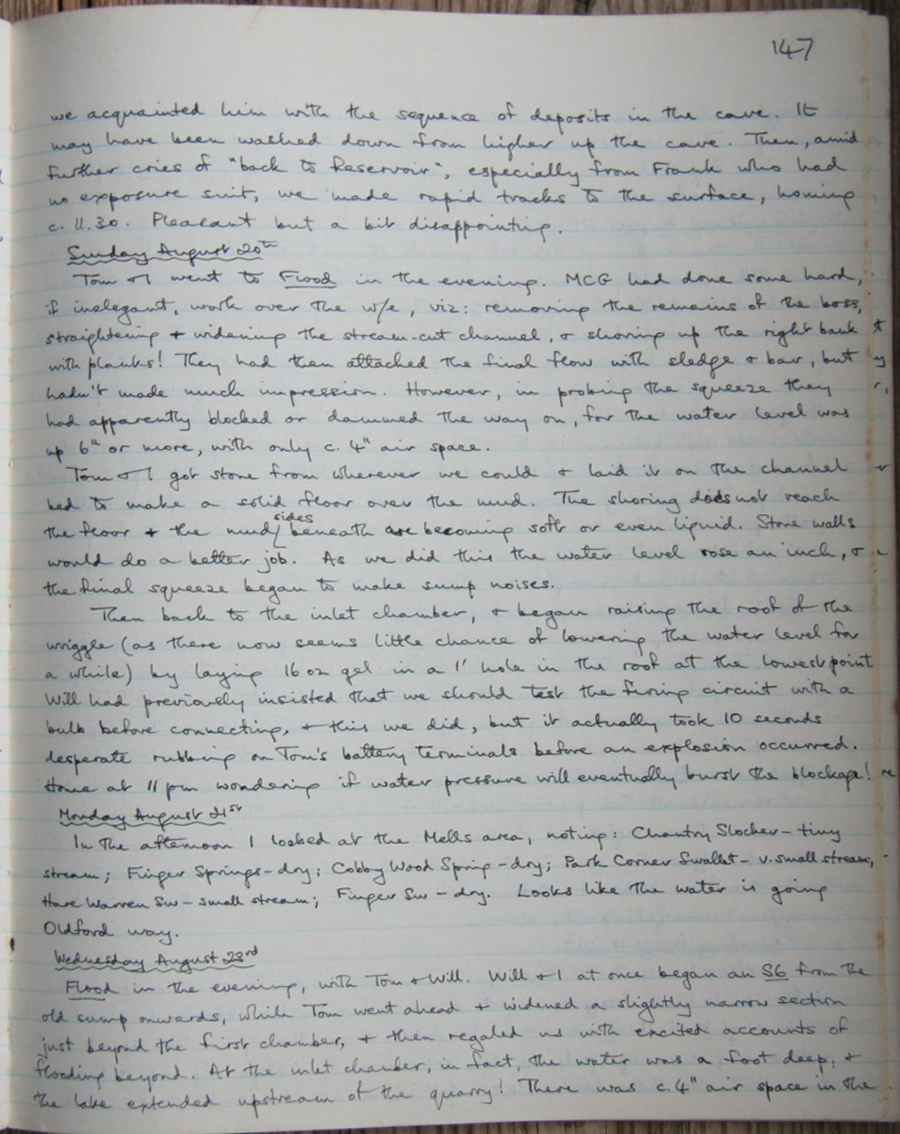 147
we acquainted him with the sequence of deposits in the cave. It
may have been washed down from higher up the cave. Then, amid
further cries of "back to Reservoir", especially from Frank who had
no exposure suit, we made rapid tracks to the surface, homing
c. 11.30. Pleasant but a bit disappointing.
Sunday August 20th
Tom & I went to Flood in the evening. MCG had done some hard,
if inelegant, work over the w/e, viz: removing the remains of the boss,
straightening & widening the stream-cut channel, & shoring up the right bank
with planks! They had then attacked the final flow with sledge & bar, but
hadn't made much impression. However, in probing the squeeze they
had apparently blocked or dammed the way on, for the water level was
up 6" or more, with only c. 4" air space.
Tom & I got stone from wherever we could & laid it on the channel
bed to make a solid floor over the mud. The shoring does not reach
the floor & the mud sides beneath are becoming soft or even liquid. Stone walls
would do a better job. As we did this the water level rose an inch, &
the final squeeze began to make sump noises.
Then back to the inlet chamber, & began raising the roof of the
wriggle (as there now seems little chance of lowering the water level for
a while) by laying 16 oz gel in a 1' hole in the roof at the lowest point
Will had previously insisted that we should test the firing circuit with a
bulb before connecting, & this we did, but it actually took 10 seconds
desperate rubbing on Tom's battery terminals before an explosion occurred.
Home at 11 pm wondering if water pressure will eventually burst the blockage!
Monday August 21st
In the afternoon I looked at the Mells area, noting: Chantry Slocker - tiny
stream; Finger Springs - dry; Cobby Wood Spring - dry; Park Corner Swallet - v. small stream,
Hare Warren Sw - small stream; Finger Sw - dry. Looks like the water is going
Oldford way.
Wednesday August 23rd
Flood in the evening, with Tom & Will. Will & I at once began an S6 from the
old sump onwards, while Tom went ahead & widened a slightly narrow section
just beyond the first chamber, & then regaled us with excited accounts of
flooding beyond. At the inlet chamber, in fact, the water was a foot deep, &
the lake extended upstream of the quarry! There was c. 4" air space in the